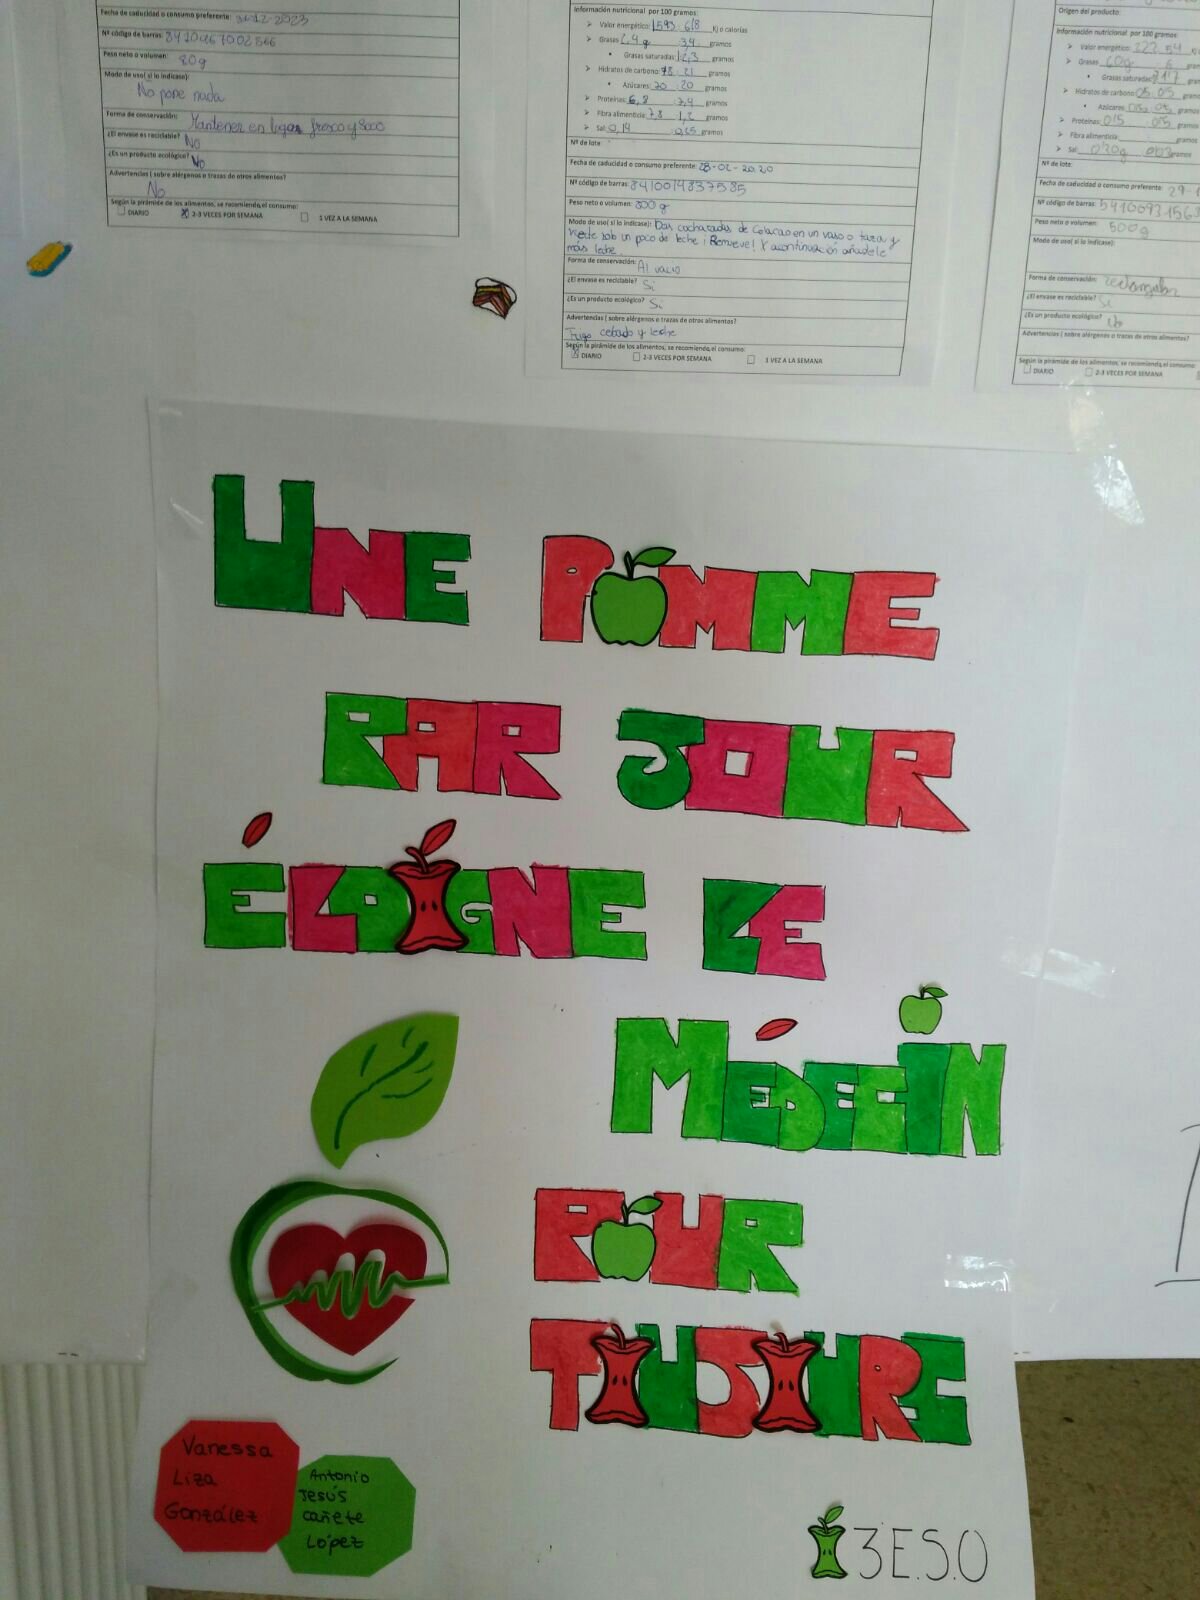 Fecha de caducidad o consumo preferente: 31-12-2023
Nº código de barras:
Peso neto o volumen: 80g
Modo de uso( si lo indicase):
No pone nada
Forma de conservación: Mantener en lugar fresco y seco
¿El envase es reciclable? No
¿Es un producto ecológico? No
Advertencias ( sobre alérgenos o trazas de otros alimentos?
No
Según la pirámide de los alimentos, se recomienda el consumo:
DIARIO 2-3 VECES POR SEMANA 1 VEZ A LA SEMANA
Información nutricional por 100 gramos:
Valor energético: 1593 618 Kj o calorías
Grasas 2,4 g 3,4 gramos
Grasas saturadas: 2,3 gramos
Hidratos de carbono: 78 21 gramos
Azúcares: 70 20 gramos
Proteínas: 6,8 7,4 gramos
Fibra alimenticia: 7,8 1,2 gramos
Sal: 0,14 0,25 gramos
Nº de lote:
Fecha de caducidad o consumo preferente: 28-02-2020
Nº código de barras: 8410014837585
Peso neto o volumen: 800 g
Modo de uso( si lo indicase): Dos cucharadas de Colacao en un vaso o taza y
vierte sob un poco de leche ¡Remueve! Y acontinuación añadele
más leche.
Forma de conservación: Al vacio
¿El envase es reciclable? Si
¿Es un producto ecológico? Si
Advertencias ( sobre alérgenos o trazas de otros alimentos?
Trigo cebada y leche
Según la pirámide de los alimentos, se recomienda el consumo:
DIARIO 2-3 VECES POR SEMANA 1 VEZ A LA SEMANA
Origen del producto:
Información nutricional por 100 gramos:
Valor energético: 222 54
Grasas 60g 6
Grasas saturadas:
Hidratos de carbono: 05 05
Azúcares:
Proteínas: 0'5 05
Fibra alimenticia:
Sal: 0'20g gramos
Nº de lote:
Fecha de caducidad o consumo preferente: 29-
Nº código de barras:
Peso neto o volumen: 500g
Modo de uso( si lo indicase):
Forma de conservación: rectangular
¿El envase es reciclable? Si
¿Es un producto ecológico? No
Advertencias ( sobre alérgenos o trazas de otros alimentos?
Según la pirámide de los alimentos, se recomienda el consumo:
DIARIO 2-3 VECES POR SEMANA
UNE POMME
PAR JOUR
ÉLOIGNE LE
MÉDECIN
POUR
TOUJOURS
Vanessa
Liza
González
Antonio
Jesús
cañete
López
3 E.S.O